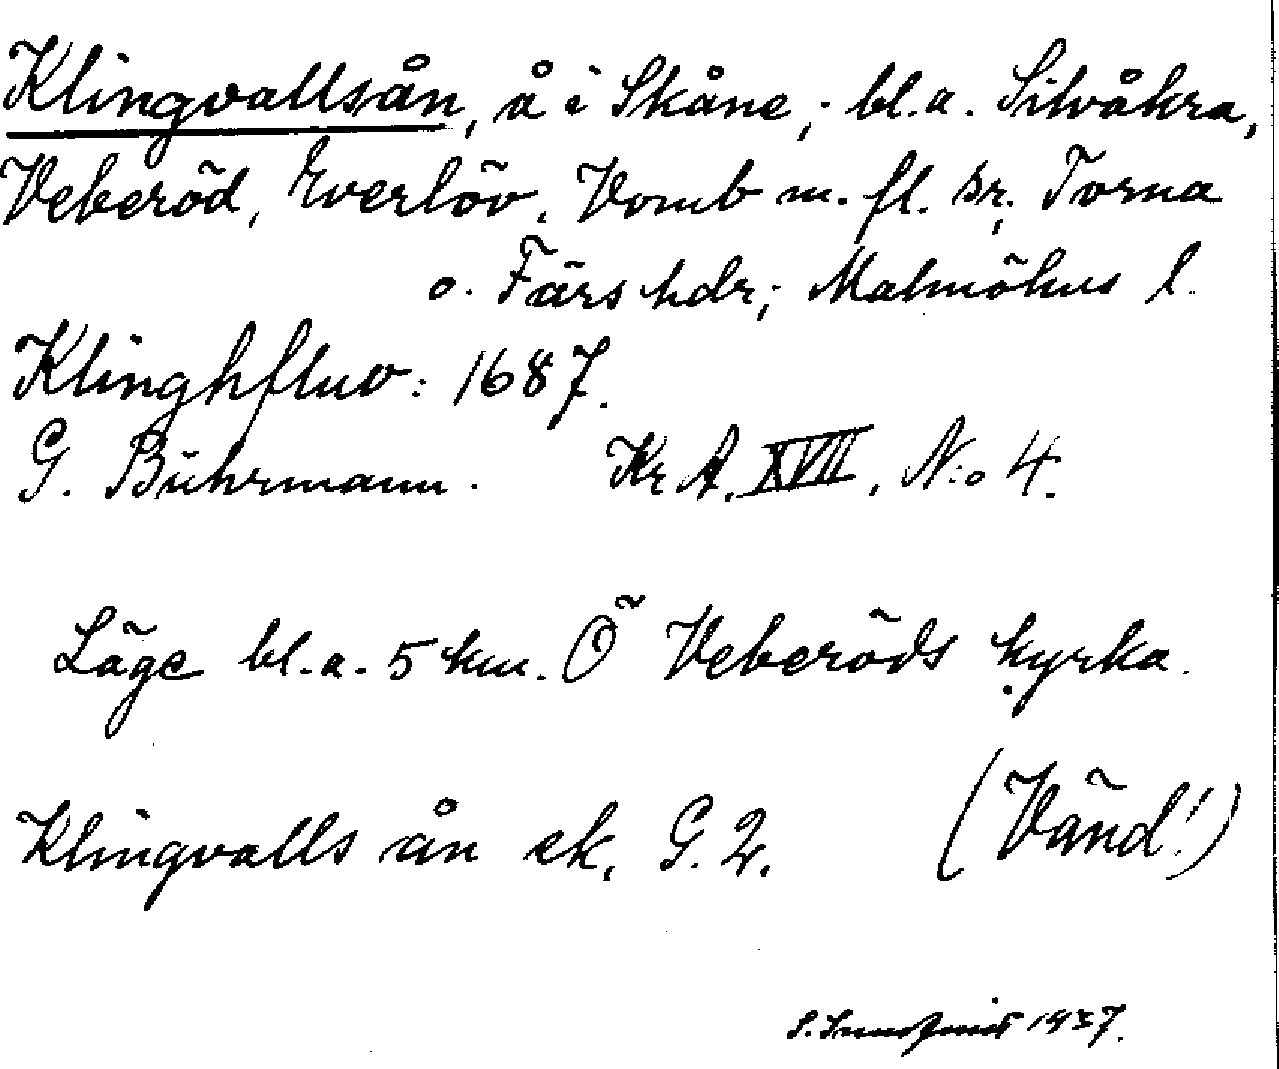 Klingvallsån, å i Skåne, bl.a. Silvåkra,
Veberöd, Everlöv, Vomb m. fl. sr, Torna
o. Färs hdr; Malmöhus l.
Klinghfluv: 1687.
G. Bührmann. Kr A. XVII, N:o 4.
Läge bl.a. 5 km. Ö Veberöds kyrka.
Klingvalls ån ek. G. 2. (Vänd!)
S.